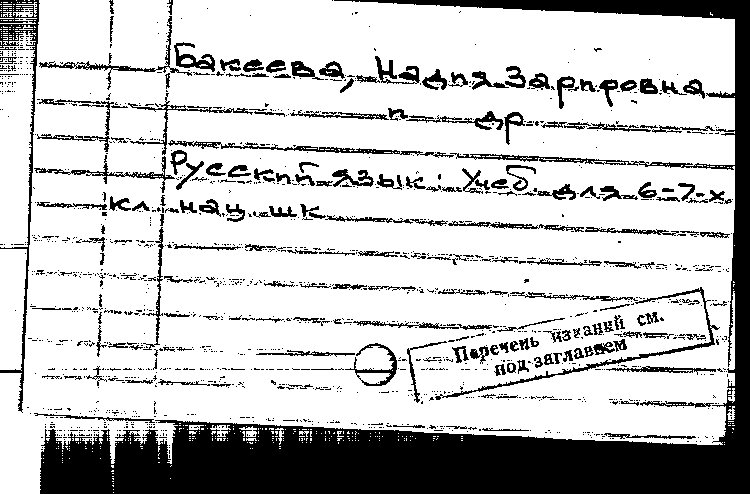 Бакеева, Надия Зарировна
и др
Русский язык: Учеб. для 6-7-х
кл нац шк
Перечень изданий см.
под заглавием